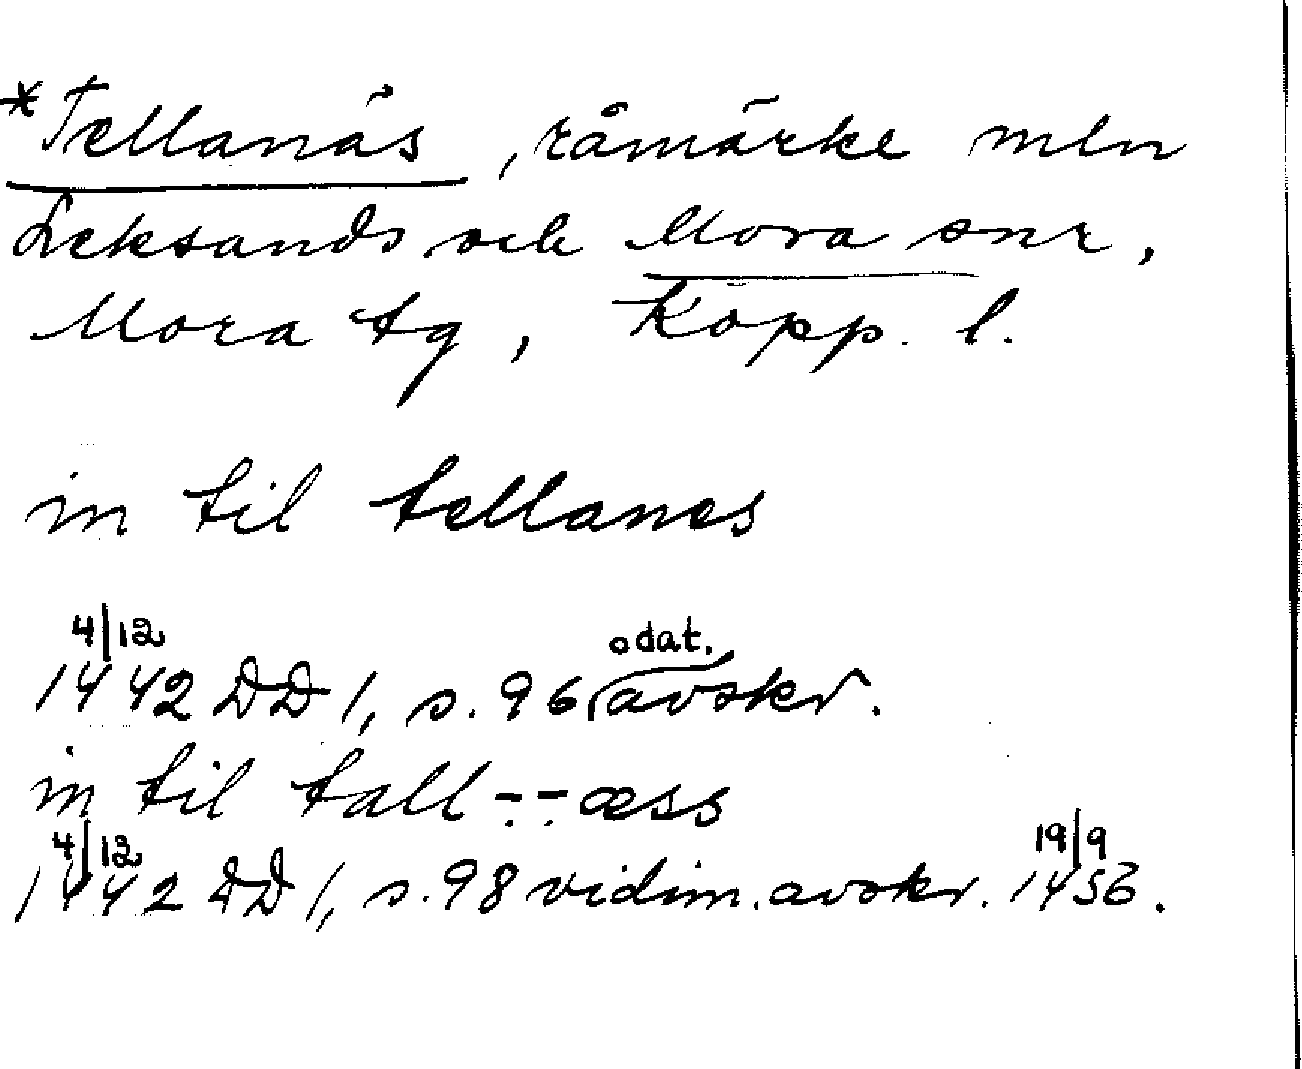 *Tellanäs, råmärke mln
Leksands och Mora snr,
Mora tg, Kopp. l.
in til tellanes
4/12
1442 DD 1, s. 96 (odat. avskr.
in til tall - - æss
4/12
1442 DD 1, s. 98 vidim. avskr. 19/9 1456.